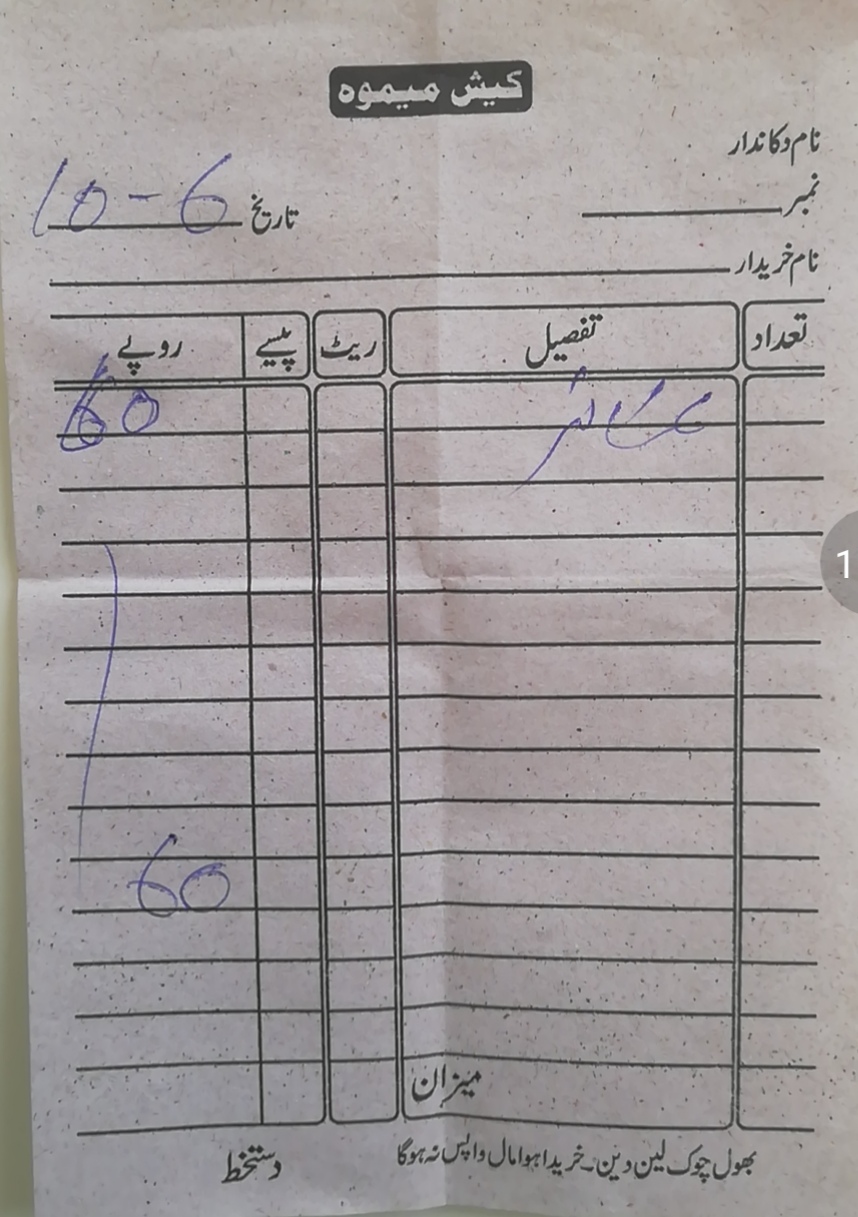 کیش میموہ
نام دکاندار
نمبر
تاریخ 10-6
نام خریدار
تعداد تفصیل ریٹ پیسے روپے
60
60
میزان
بھول چوک لین دین۔خریدا ہوا مال واپس نہ ہوگا
دستخط
1